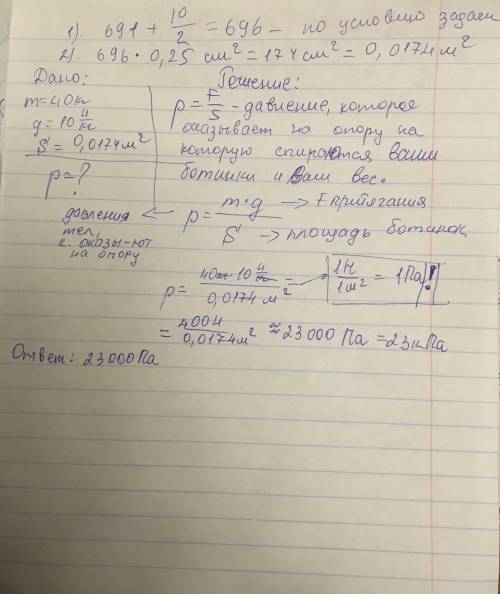 1). 691 + 10/2 = 696 - по условию задачи
2). 696 · 0,25 см² = 174 см² = 0,0174 м²
Дано:
m = 40 кг
g = 10 Н/кг
S = 0,0174 м²
p = ?
Решение:
p = F/S - давление, которое
оказывает на опору на
которую спираются ваши
ботинки и Ваш вес.
p = m·g/S
→ F притягания
→ площадь ботинок
давления
тел,
к. оказы-ют
на опору
p = 40 кг · 10 Н/кг / 0,0174 м² =
1Н/1м² = 1Па!
= 400Н/0,0174м² ≈ 23 000 Па = 23кПа
Ответ: 23 000 Па